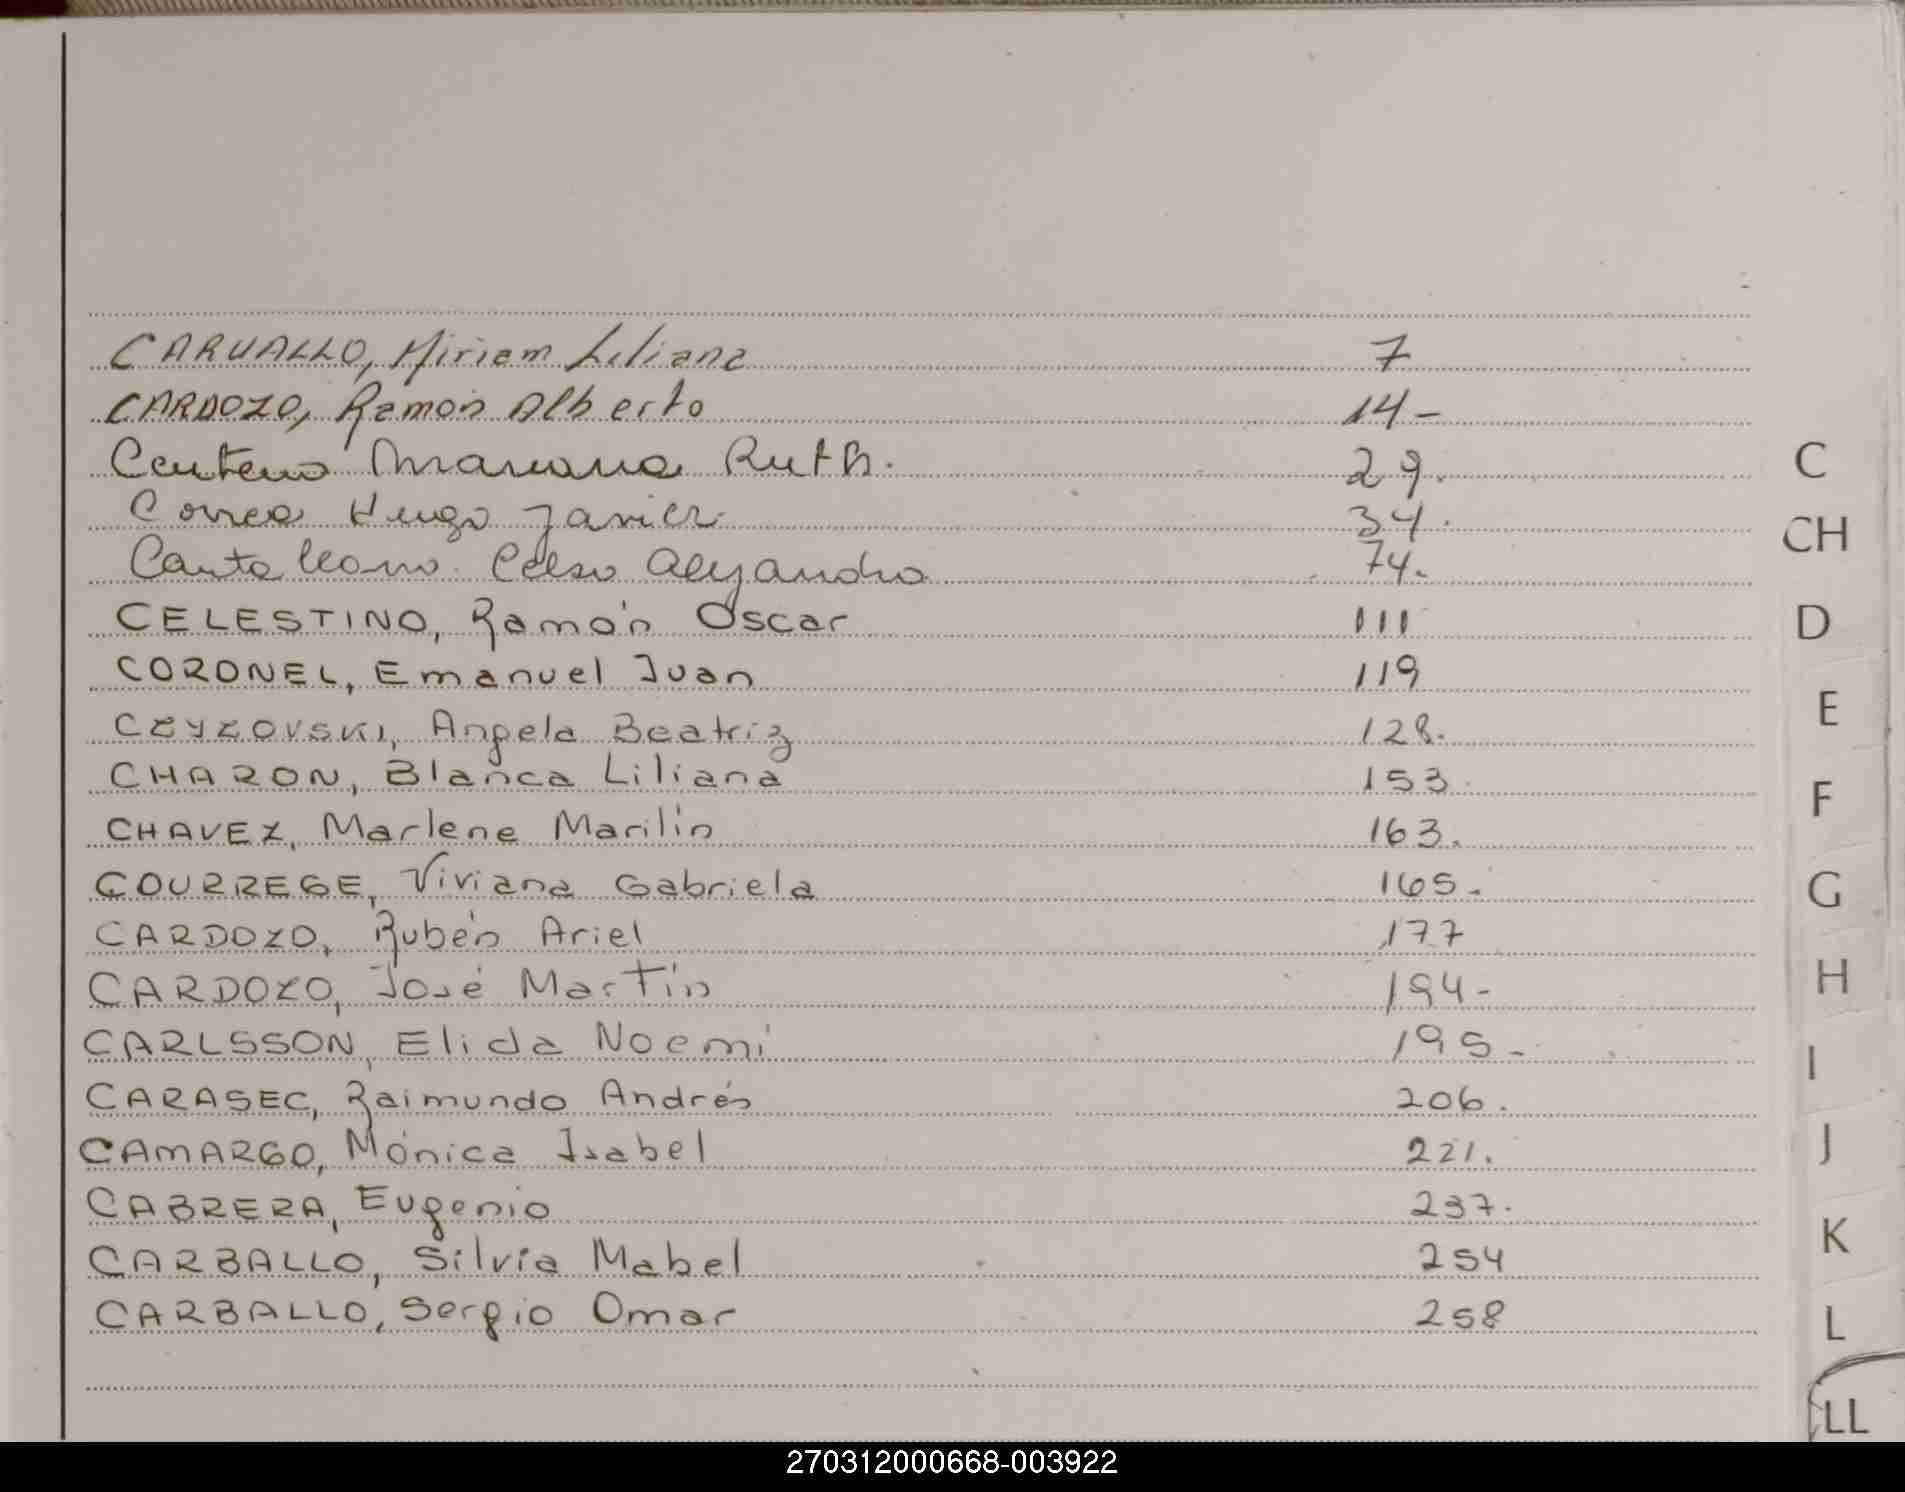 CARVALLO, Miriam Liliana 7
CARDOZO, Ramón Alberto 14-
Centeno Mariana Ruth. 29.
Correa Hugo Javier. 34.
Cantaleano. Celso Alejandro 74.
CELESTINO, Ramón Oscar 111
CORONEL, Emanuel Juan 119
CZYZOVSKI, Angela Beatriz 128.
CHARON, Blanca Liliana 153.
CHAVEZ, Marlene Marilín 163.
COURREGE, Viviana Gabriela 165.
CARDOZO, Rubén Ariel 177
CARDOZO, José Martín 194-
CARLSSON, Elida Noemí 195-
CARASEC, Raimundo Andrés 206.
CAMARGO, Mónica Isabel 221.
CABRERA, Eugenio 237.
CARBALLO, Silvia Mabel 254
CARBALLO, Sergio Omar 258
C
CH
D
E
F
G
H
I
J
K
L
LL
270312000668-003922